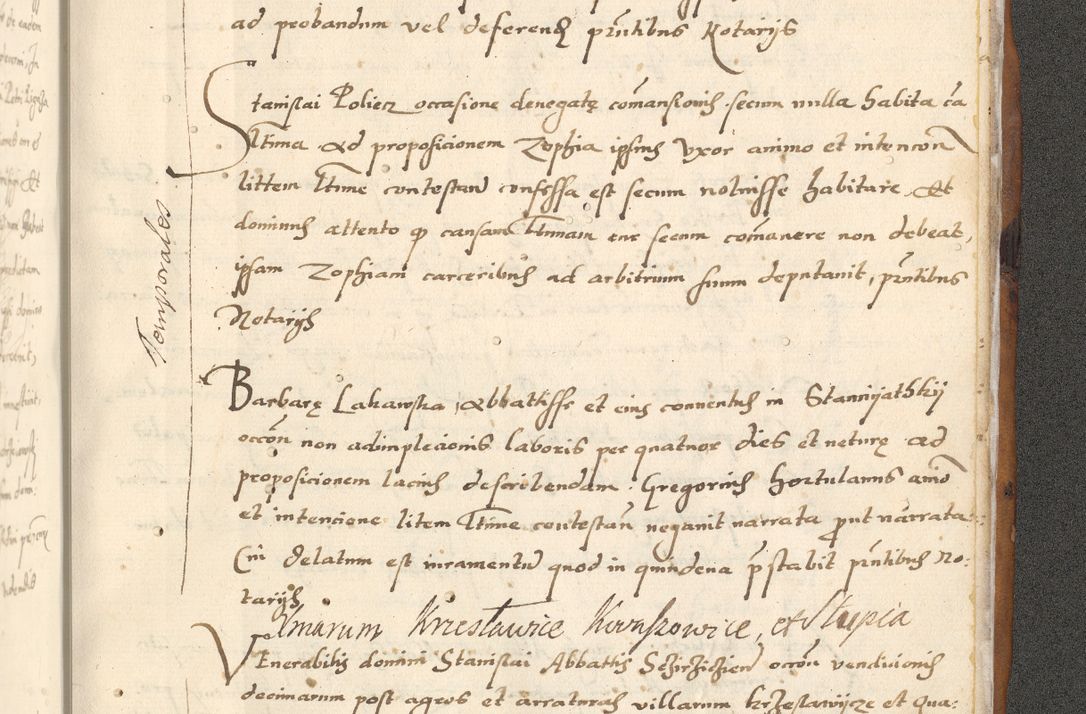 ad probandum vel deferend prntibus Notarijs
Stanislai Policz occasione denegatę comansionis secum nulla habita ca
lttima Ad proposicionem Zophia ipsius Vxor animo et intencon
littem lttime contestand confessa est secum noluisse habitare Et
dominus attento qp causam lttimam cur secum comanere non debeat,
ipsam Zophiam carceribus ad arbitrium suum deputauit, prntibus
Notarijs
Temporales
Barbarę Lakawska, Abbattisse et eius conuentus in Stanniyathkij
occon non adimplecionis laboris per quatuor dies et neturę Ad
proposicionem lacius describendam. Gregorius hortulanus aīo
et intencione litem lttime contestan negauit narrata prout narrata
Cui delatum est iuramentū quod in quindena pstabit prntibus No:
tarijs
Xmarum Krzesławice Kowaszowice, et Stupia
VEnerabilis domini Stanislai Abbattis occon vendicionis
decimarum post agros et arraturas villarum krzeslawijcze et Qua: